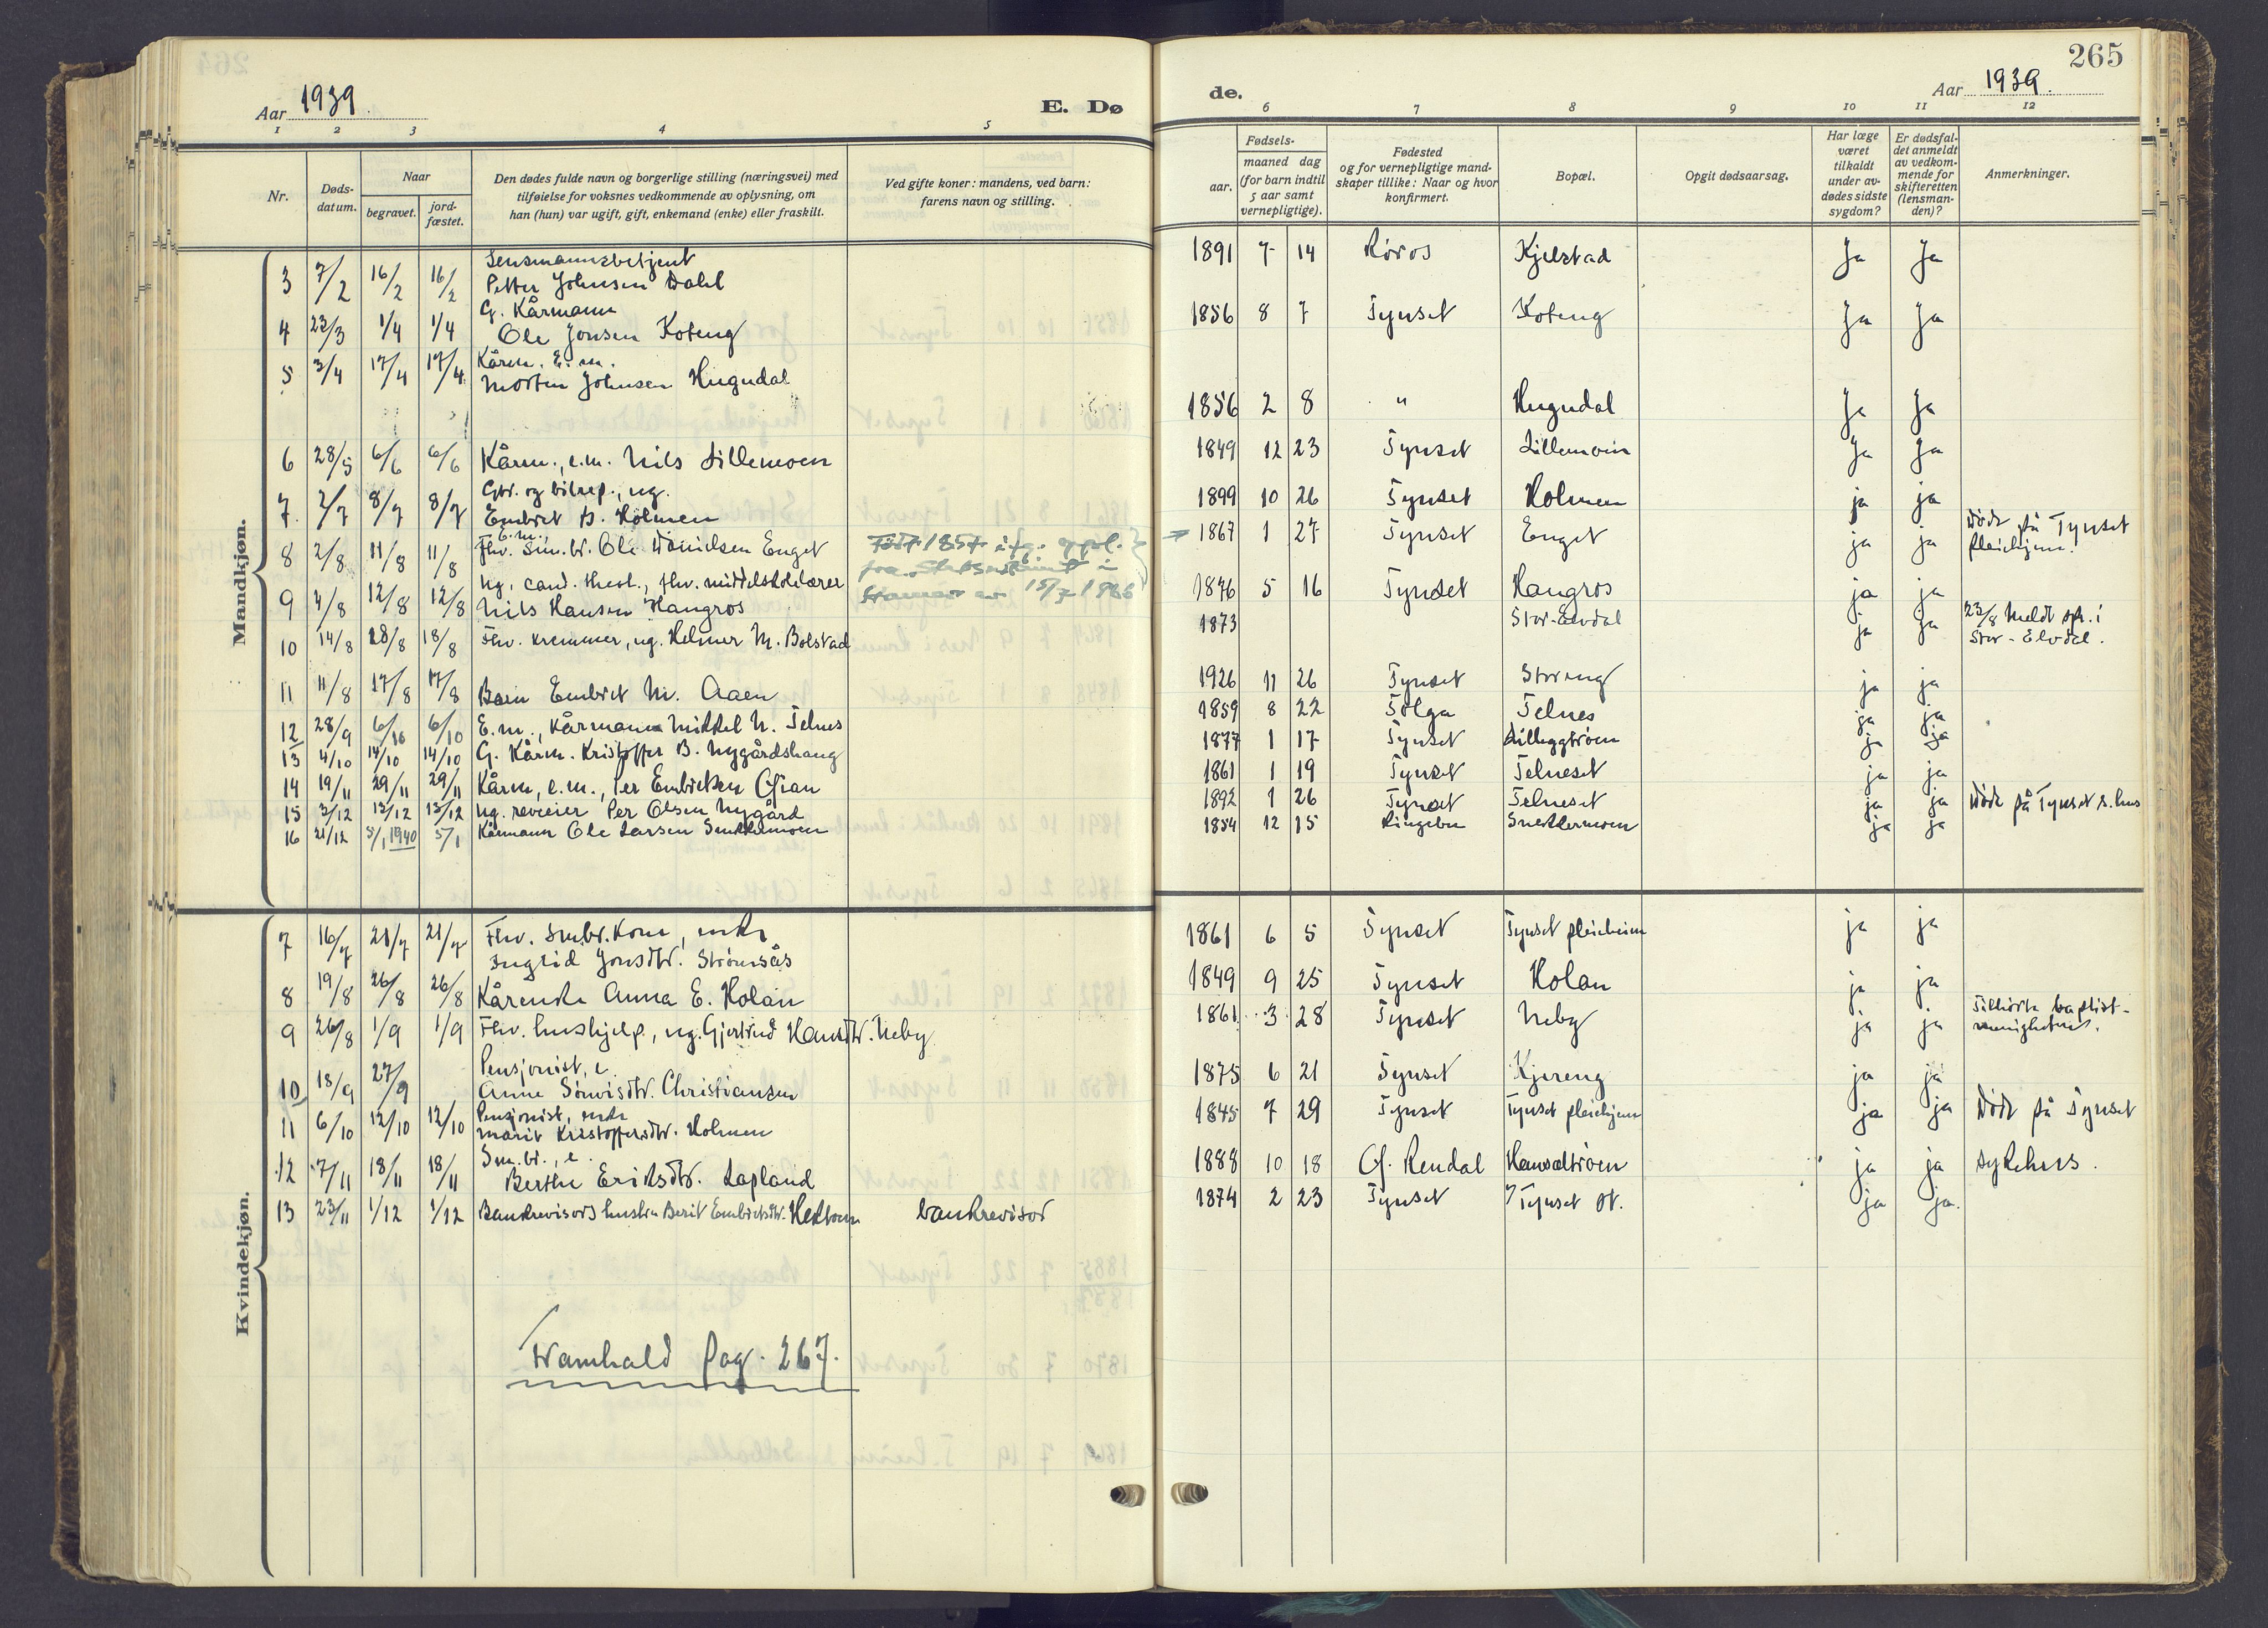 265
Aar 1939. E. Dø de. Aar 1939.
1 2 3 4 5 6 7 8 9 10 11 12
Nr.
Døds-datum.
Naar
begravet.
jord-fæstet.
Den dødes fulde navn og borgerlige stilling (næringsvei) med
tilføielse for voksnes vedkommende av oplysning, om
han (hun) var ugift, gift, enkemand (enke) eller fraskilt.
Ved gifte koner: mandens, ved barn:
farens navn og stilling.
Fødsels-
aar. maaned dag
(for barn indtil
5 aar samt
vernepligtige).
Fødested
og for vernepligtige mand-
skaper tillike: Naar og hvor
konfirmert.
Bopæl.
Opgit dødsaarsag.
Har læge
været
tilkaldt
under av-
dødes sidste
sygdom?
Er dødsfal-
det anmeldt
av vedkom-
mende for
skifteretten
(lensman-
den)?
Anmerkninger.
Mandkjøn.
Lensmannsbetjent
3 7/2 16/2 16/2 Petter Johnsen Dahl 1891 7 14 Røros Kjelstad Ja Ja
G. Kårmann
4 23/3 1/4 1/4 Ole Jonsen Koteng 1856 8 7 Tynset Koteng Ja Ja
Kårm. E. m.
5 3/4 17/4 17/4 Morten Johnsen Hugudal 1856 2 8 " Hugudal Ja Ja
6 28/5 6/6 6/6 Kårm., e.m. Nils Lillemoen 1849 12 23 Tynset Lillemoen Ja Ja
Gbr. og bilrep., ug.
7. 2/7 8/7 8/7 Embret B. Holmen 1899 10 26 Tynset Holmen ja ja
E.m.
8 2/8 11/8 11/8 Fhv. Sm.br. Ole Danielsen Enget 1867 1 27 Tynset Enget ja ja Døde på Tynset
pleiehjem.
Født 1857 ifg. oppl.
fra Statsarkivet i
Hamar av 15/7 1966
Ug. cand. theol., fhv. middelskolelærer
9 4/8 12/8 12/8 Nils Hansen Haugros 1876 5 16 Tynset Haugros ja ja
10 14/8 28/8 18/8 Fhv. kremmer, ug. Helmer M. Bolstad 1873 Stor-Elvdal ja ja 23/8 Meldt spr. i
Stor-Elvdal.
11 11/8 17/8 17/8 Barn Embret M. Aaen 1926 11 26 Tynset Storeng ja ja
12 28/9 6/10 6/10 E.m., Kårmann Mikkel N. Telnes 1859 8 22 Tolga Telnes ja ja
13 4/10 14/10 14/10 G. Kårm. Kristoffer B. Nygårdshaug 1877 1 17 Tynset Lilleggtrøen ja ja
14 19/11 29/11 29/11 Kårm, e.m., Per Embretsen Gjran 1861 1 19 Tynset Telneset ja ja
15 3/12 13/12 13/12 Ug. reveier Per Olsen Nygård 1892 1 26 Tynset Telneset ja ja Døde på Tynset s.hus
16 21/12 5/1 1940 5/1 Kårmann Ole Larsen Snekkermoen 1854 12 15 Ringebu Snekkermoen ja ja
Kvindekjøn.
7 16/7 21/7 21/7 Fhv. Smbr.kone, enke 1861 6 5 Tynset Tynset pleieheim ja ja
Ingrid Jonsdtr. Strømsås
8 19/8 26/8 26/8 Kårenke Anna E. Holan 1849 9 25 Tynset Holan ja ja
9 26/8 1/9 1/9 Fhv. hushjelp, ug. Gjertrud Hansdtr. Neby 1861 3 28 Tynset Neby ja ja Tilhørte baptist-
menigheten.
Pensjonist, e.
10 18/9 27/9 Anne Simvisdtr. Christiansen 1875 6 21 Tynset Kjereng ja ja
Pensjonist, enke
11 6/10 12/10 12/10 Marit Kristoffersdtr. Holmen 1845 7 29 Tynset Tynset pleiehjem ja ja Døde på Tynset
Sm.br., e.
12 7/11 18/11 18/11 Berthe Eriksdtr. Lapland 1888 10 18 Ø. Rendal Hansæltrøen ja ja sykehus.
13 23/11 1/12 1/12 Bankrevisors hustru Berit Embretsdtr. Hektoen bankrevisor 1874 2 23 Tynset Tynset st. ja ja.
Framhald pag. 267.